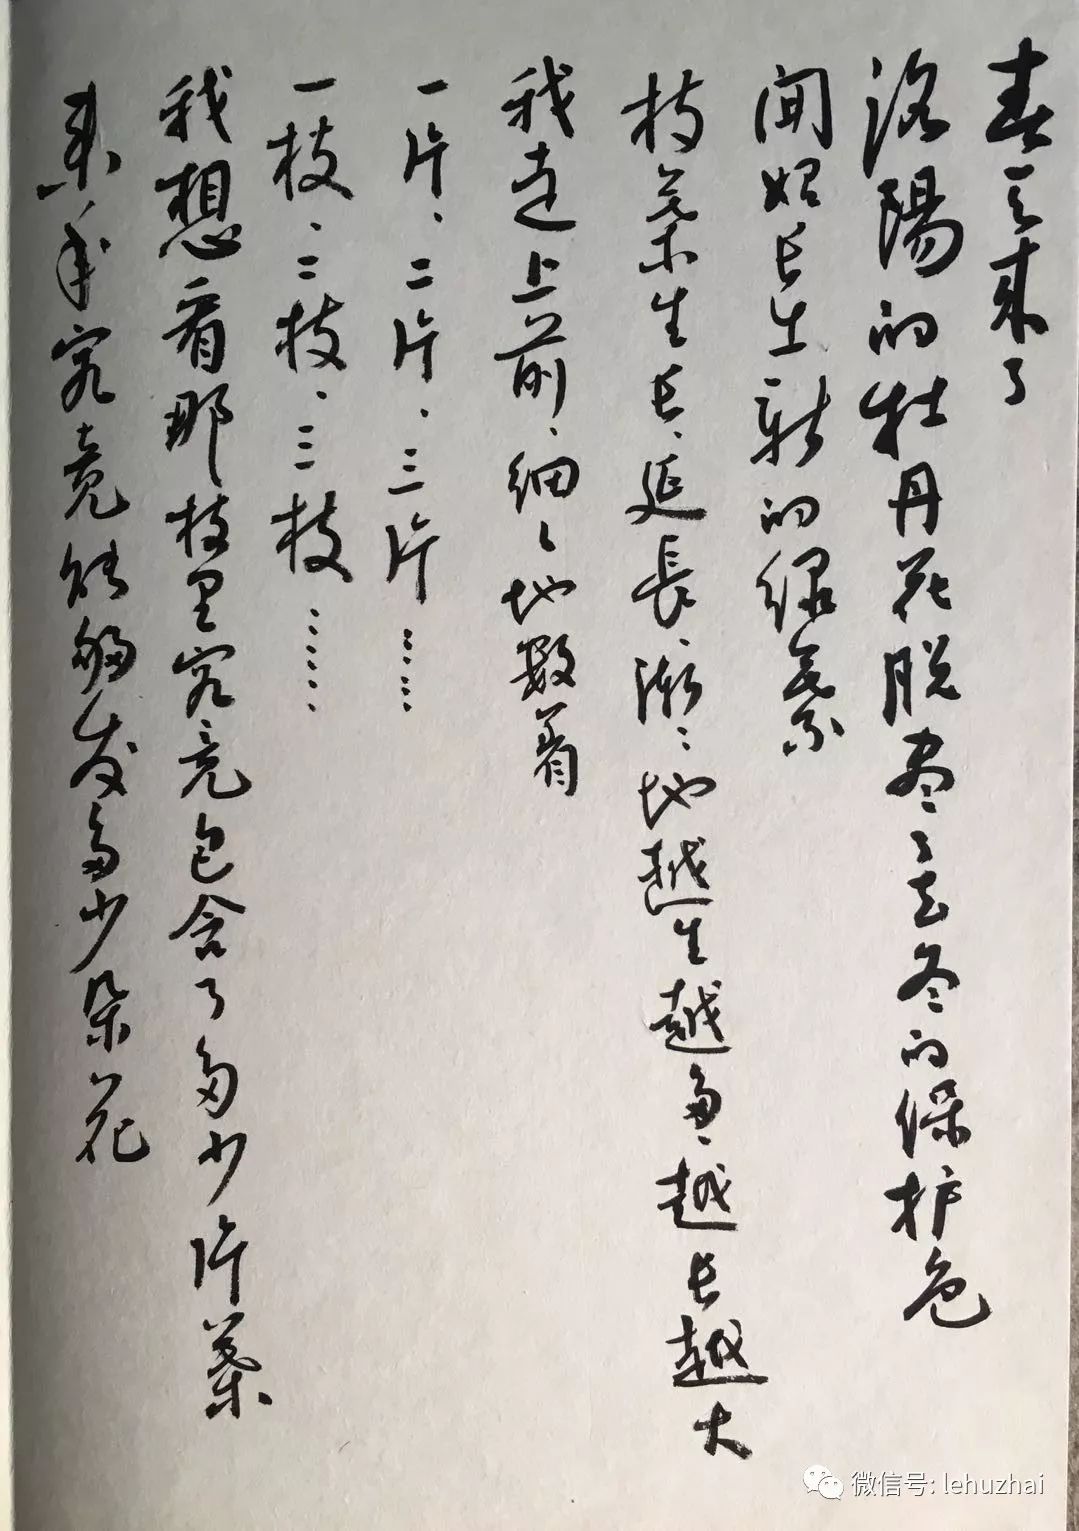 春天来了
洛陽的牡丹花脱尽了去冬的保护色
開始长生新的绿葉
枝葉生长、延長、渐々地越生越多、越长越大
我走上前、细々地数着
一片、二片、三片……
一枝、二枝、三枝……
我想看那枝里究竟包含了多少片葉
来年究竟能够发多少朵花
微信号: lehuzhai